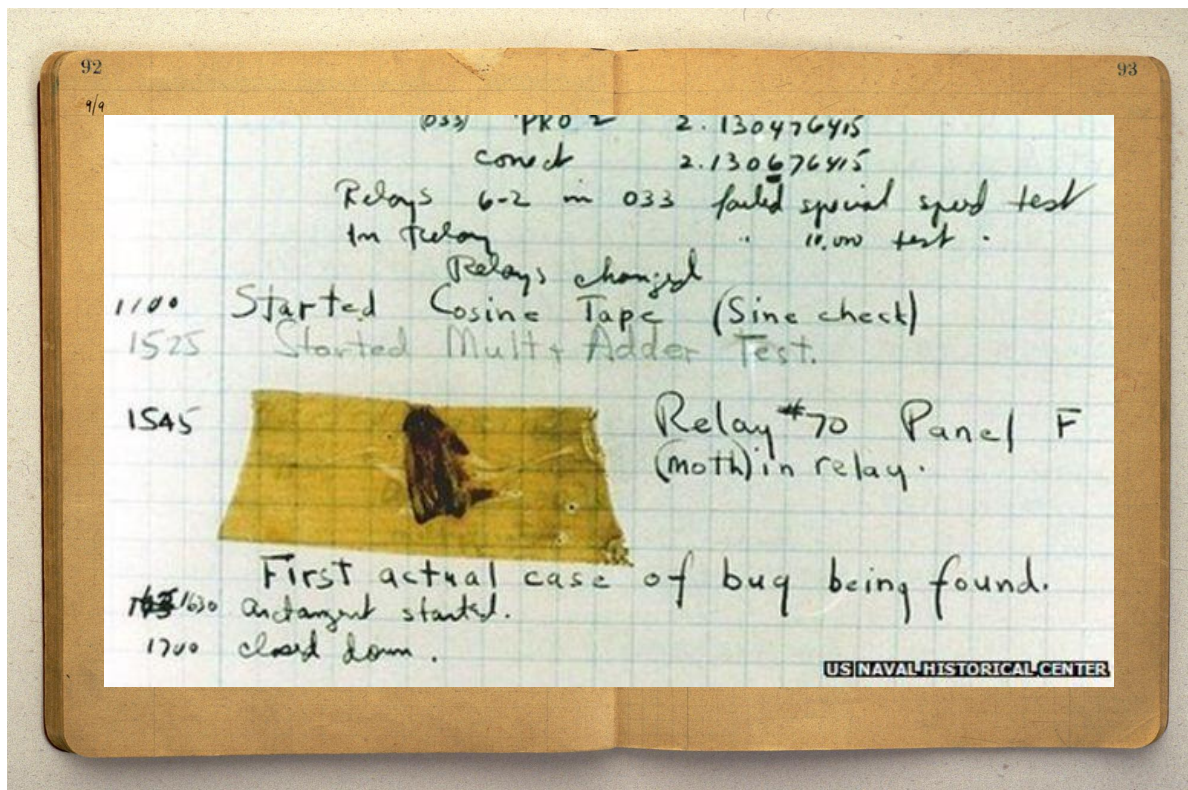 92
93
9/9
(033) PRO 2 2.130476415
conect 2.130676415
Relays 6-2 in 033 failed special speed test
In Relay " 10,000 test.
Relays changed
1100 Started Cosine Tape (Sine check)
1525 Started Mult + Adder Test.
1545 Relay #70 Panel F
(moth) in relay.
First actual case of bug being found.
1630 arctangent started.
1700 closed down.
US NAVAL HISTORICAL CENTER